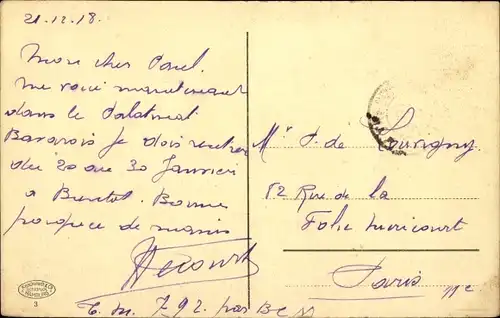 21.12.18.
Mon cher Paul.
me voici maintenant
dans le Palatinat
Bavarois je dois rentrer
du 20 au 30 Janvier
a Bientot. Bonne
de mains
Mr P. de Louvigny.
82 Rue de la
Folie Mericourt
Paris
3